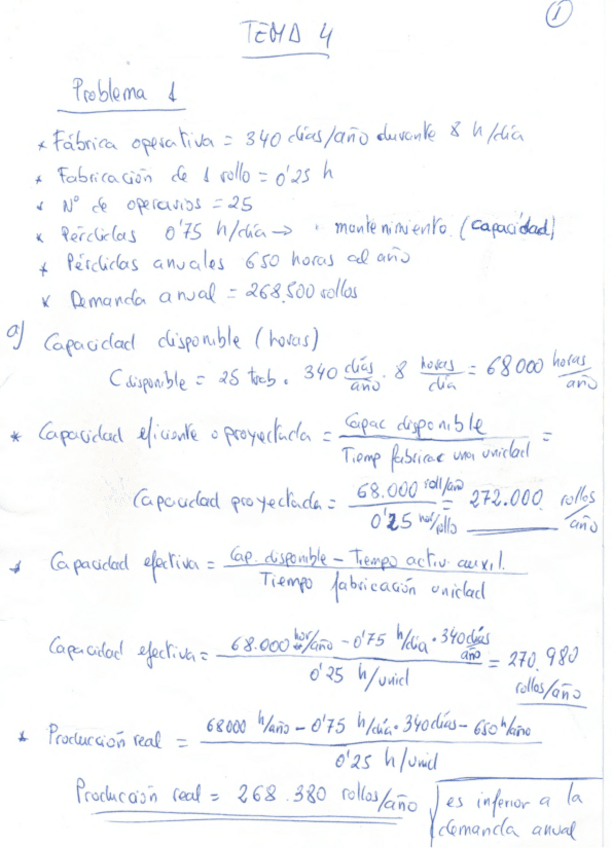 1
TEMA 4
Problema 1
* Fábrica operativa = 340 días/año durante 8 h/día
* Fabricación de 1 rollo = 0'25 h
* Nº de operarios = 25
* Pérdidas 0'75 h/día → · mantenimiento. (capacidad)
* Pérdidas anuales 650 horas al año
* Demanda anual = 268.500 rollos
a) Capacidad disponible (horas)
C disponible = 25 trab. 340 días/año · 8 horas/día = 68000 horas/año
* Capacidad eficiente o proyectada = Capac disponible / Tiemp fabricar una unidad =
Capacidad proyectada = 68.000 roll/año / 0'25 hor/rollo = 272.000 rollos/año
* Capacidad efectiva = Cap. disponible - Tiempo activ. auxil. / Tiempo fabricación unidad
Capacidad efectiva = 68.000 hor/año - 0'75 h/día · 340 días/año / 0'25 h/unid = 270.980 rollos/año
* Producción real = 68000 h/año - 0'75 h/día · 340 días - 650 h/año / 0'25 h/unid
Producción real = 268.380 rollos/año es inferior a la
demanda anual